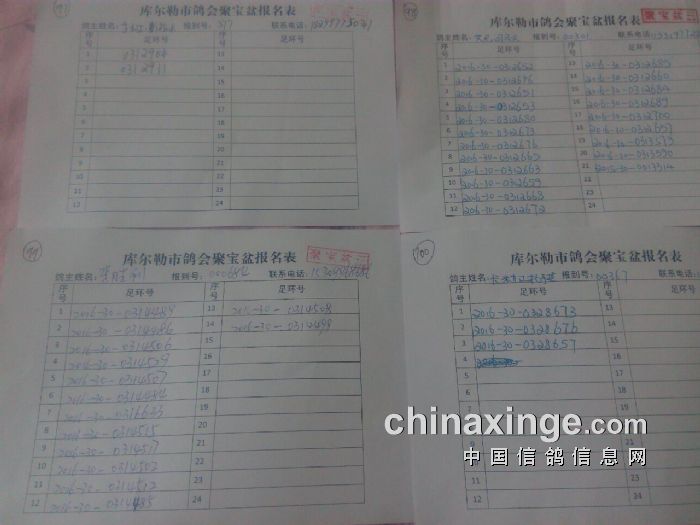 库尔勒市鸽会聚宝盆报名表
鸽主姓名: 报到号: 377 联系电话:
序号 足环号 序号 足环号
1 0312904 13
2 0312911 14
3 15
4 16
5 17
6 18
7 19
8 20
9 21
10 22
11 23
12 24
98
库尔勒市鸽会聚宝盆报名表
聚宝盆
鸽主姓名: 报到号: 00301 联系电话:
序号 足环号 序号 足环号
1 2016-30-0312652 13 2016-30-0312685
2 2016-30-0312696 14 2016-30-0312660
3 2016-30-0312651 15 2016-30-0312684
4 2016-30-0312653 16 2016-30-0312689
5 2016-30-0312680 17 2016-30-0312700
6 2016-30-0312673 18 2016-30-0312657
7 2016-30-0312676 19 2016-30-0313579
8 2016-30-0312665 20 2016-30-0313590
9 2016-30-0312663 21 2015-30-0313514
10 2016-30-0312659 22
11 2016-30-0312668 23
12 2016-30-0312672 24
99
库尔勒市鸽会聚宝盆报名表
聚宝盆
鸽主姓名: 报到号: 000684 联系电话:
序号 足环号 序号 足环号
1 2016-30-0314489 13 2015-30-0314508
2 2016-30-0314486 14 2016-30-0312499
3 2016-30-0314506 15
4 2016-30-0314509 16
5 2016-30-0314507 17
6 2016-30-0314484 18
7 2016-30-0316633 19
8 2016-30-0314515 20
9 2016-30-0314517 21
10 2016-30-0314502 22
11 2016-30-0314512 23
12 2016-30-0314485 24
100
库尔勒市鸽会聚宝盆报名表
鸽主姓名: 报到号: 00367 联系电话:
序号 足环号 序号
1 2016-30-0328673 13
2 2016-30-0328676 14
3 2016-30-0328657 15
4 16
5 17
6 18
7
8
9
10
11 23
12 24
chinaxinge.com
中国信鸽信息网